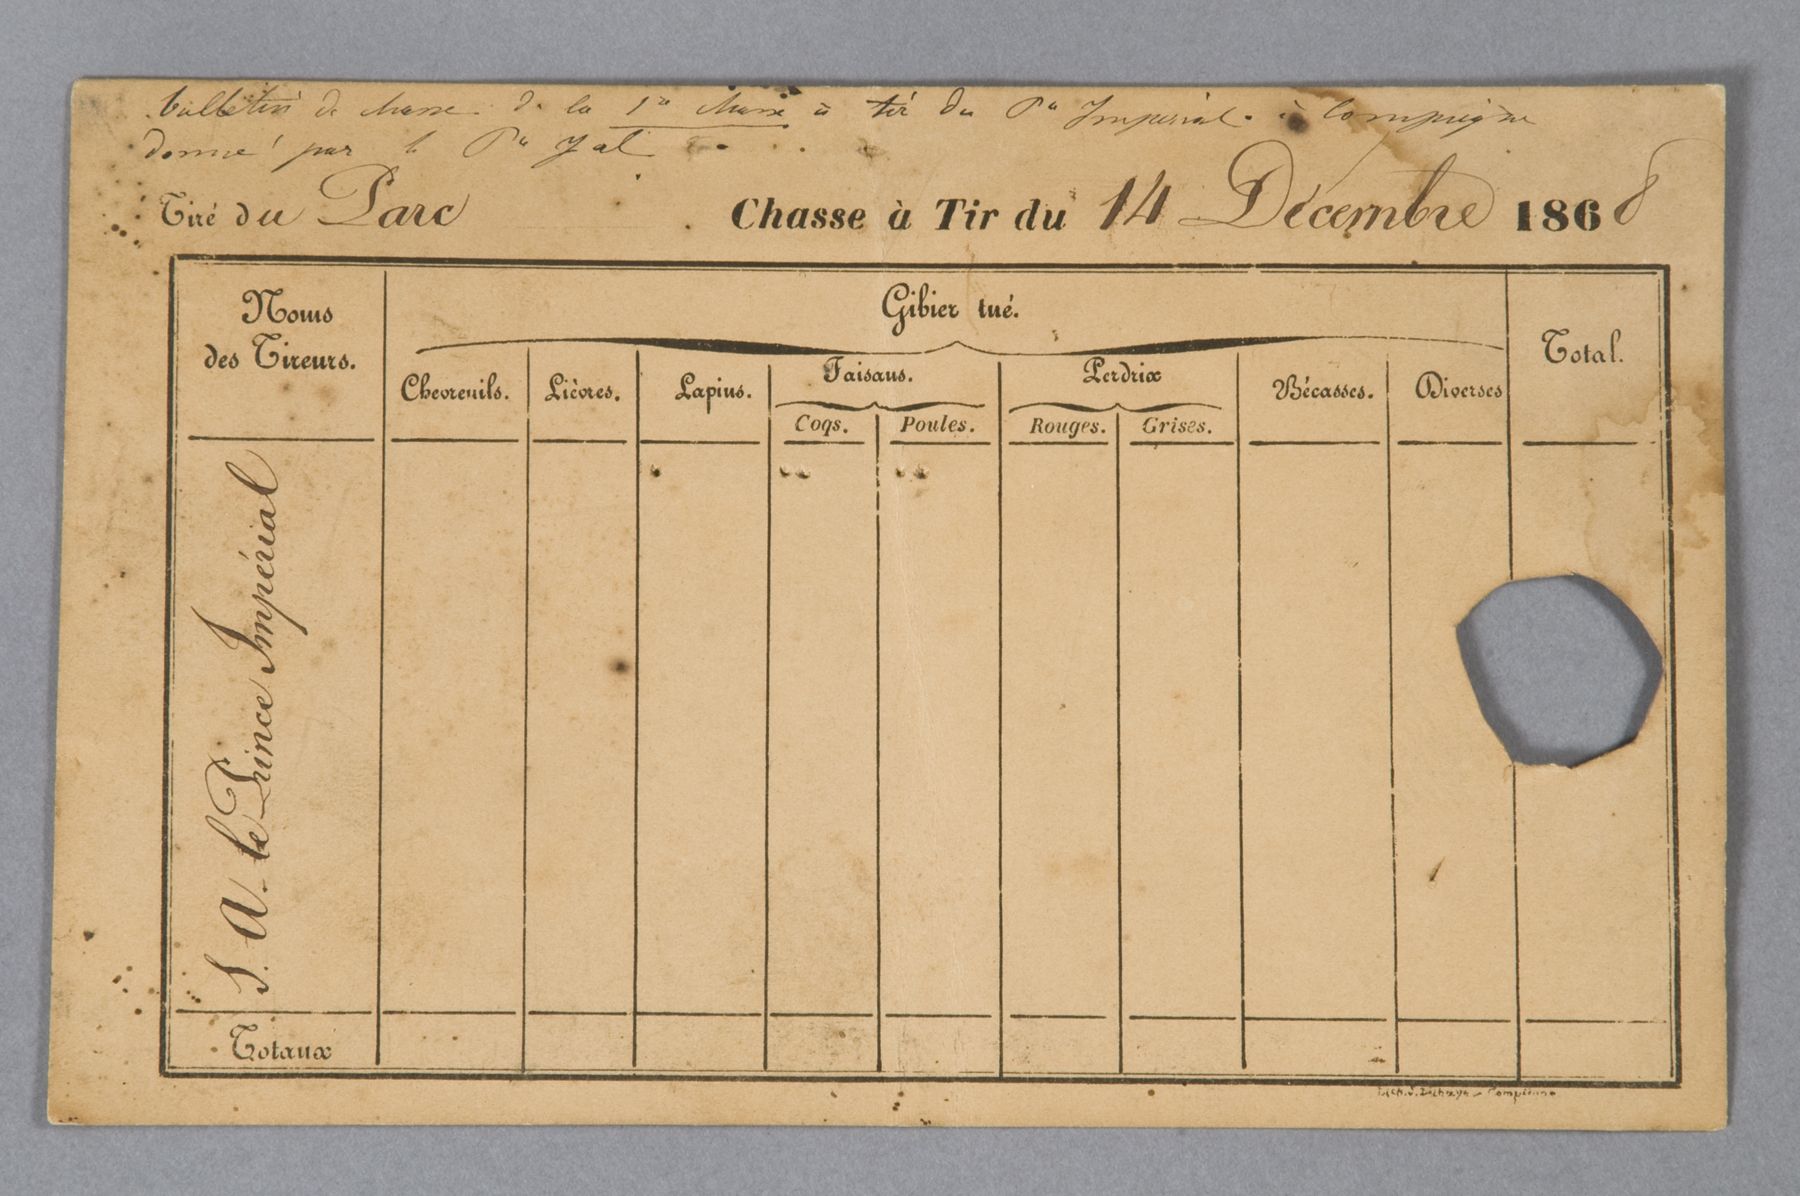 bulletin de chasse de la 1re chasse à tir du Pce Imperial. à Compiègne
donné par le Pce Jal
Tiré du Parc Chasse à Tir du 14 Décembre 1868
Noms des Tireurs.
Gibier tué.
Total.
Chevreuils. Lièvres. Lapins. Faisans. Perdrix Bécasses. Diverses
Coqs. Poules. Rouges. Grises.
S. A. le Prince Impérial
Totaux
Compiègne